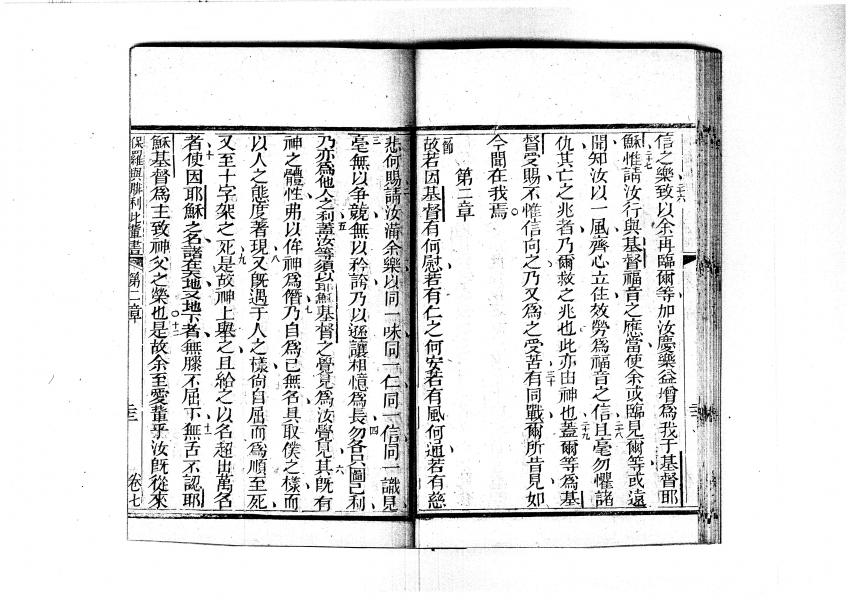 信之樂致以余再臨爾等加汝慶樂益增為我于基督耶
二六
穌惟請汝行與基督福音之應當使余或臨見爾等或遠
二七
二八
聞知汝以一風齊心立住效勞為福音之信且毫勿懼諸
仇其亡之兆者乃爾救之兆也此亦由神也蓋爾等為基
二十九
督受賜不惟信向之乃又為之受苦有同戰爾所昔見如
三十
今聞在我焉
第二章
一節
故若因基督有何慰若有仁之何安若有風何通若有慈
悲何賜請汝滿余樂以同一味同一仁同一信同一識見
二
毫無以爭競無以矜誇乃以遜讓相憶為長勿各只圖己利
三
四
乃亦為他人之利蓋汝等須以耶穌基督之覺見為汝覺見其既有
五
六
神之體性弗以侔神為僭乃自為己無名具取僕之樣而
七
以人之態度著現又既遇于人之樣尚自屈而為順至死
八
又至十字架之死是故神上舉之且給之以名超出萬名
九
者使因耶穌之名諸在天地又地下者無膝不屈下無舌不認耶
十
十一
穌基督為主致神父之榮也是故余至愛輩乎汝既從來
十二
保羅與腓利比輩書 第二章 卷七